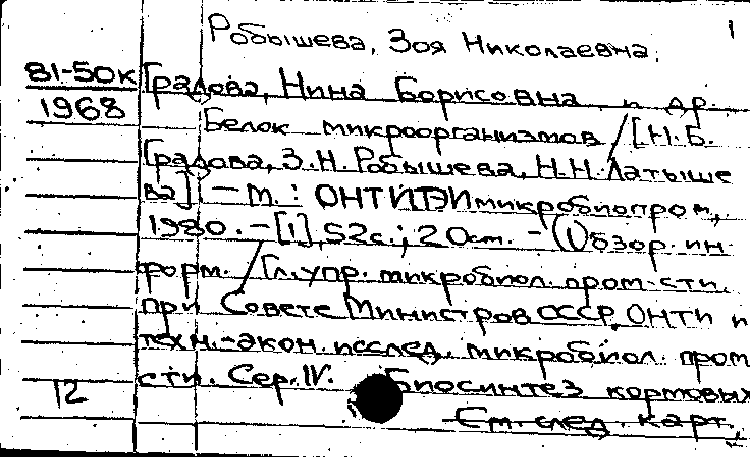 1
Робышева, Зоя Николаевна.
81-50к Градова, Нина Борисовна и др.
1968
Белок микроорганизмов / [Н.Б.
Градова, З.Н. Робышева, Н.Н. Латыше
ва] — М. : ОНТИТЭИмикробиопром,
1980. — [1], 52с.; 20см. — (Обзор. ин
форм. / Гл. упр. микробиол. пром-сти.
при Совете Министров СССР, ОНТИ и
техн.-экон. исслед. микробиол. пром
сти. Сер. IV. Биосинтез кормовых
12
См. след. карт.